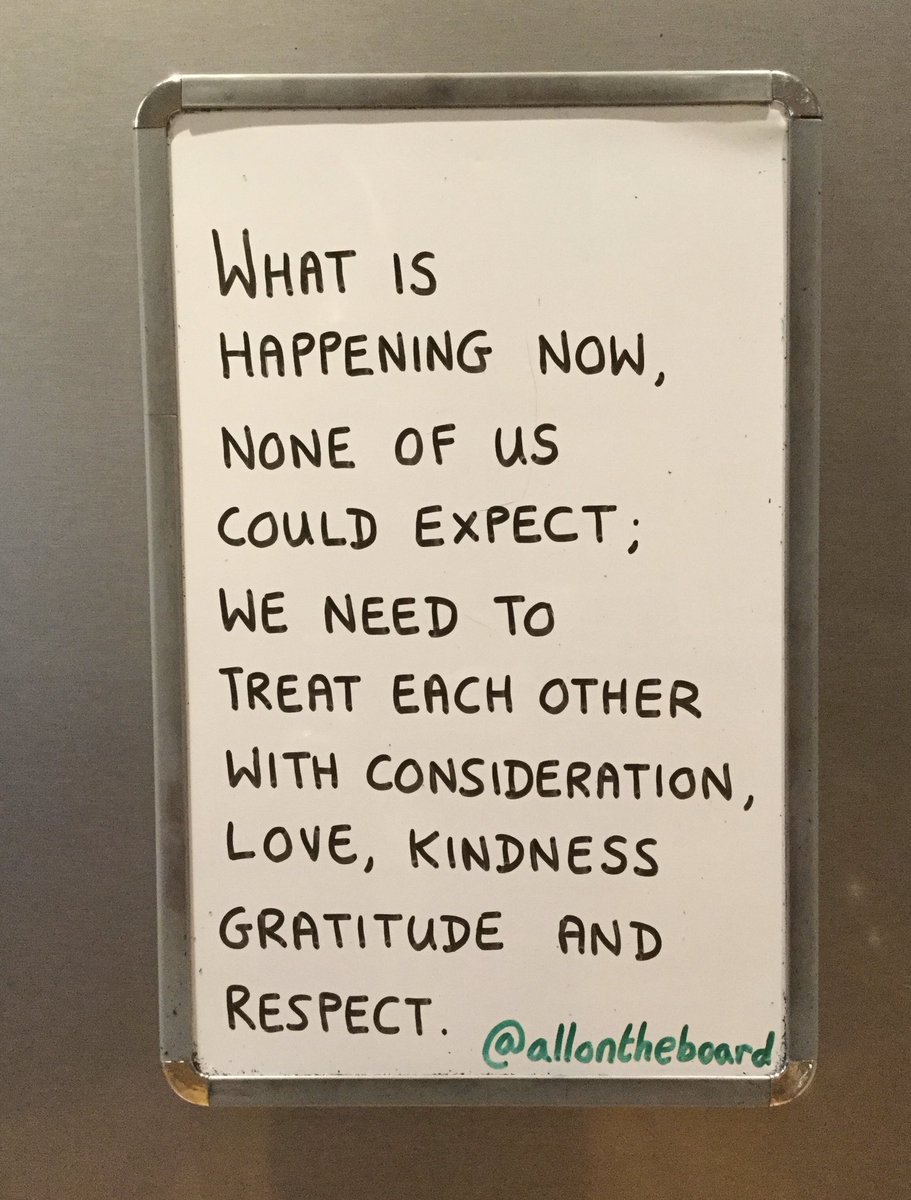 WHAT IS
HAPPENING NOW,
NONE OF US
COULD EXPECT;
WE NEED TO
TREAT EACH OTHER
WITH CONSIDERATION,
LOVE, KINDNESS
GRATITUDE AND
RESPECT.
@allontheboard